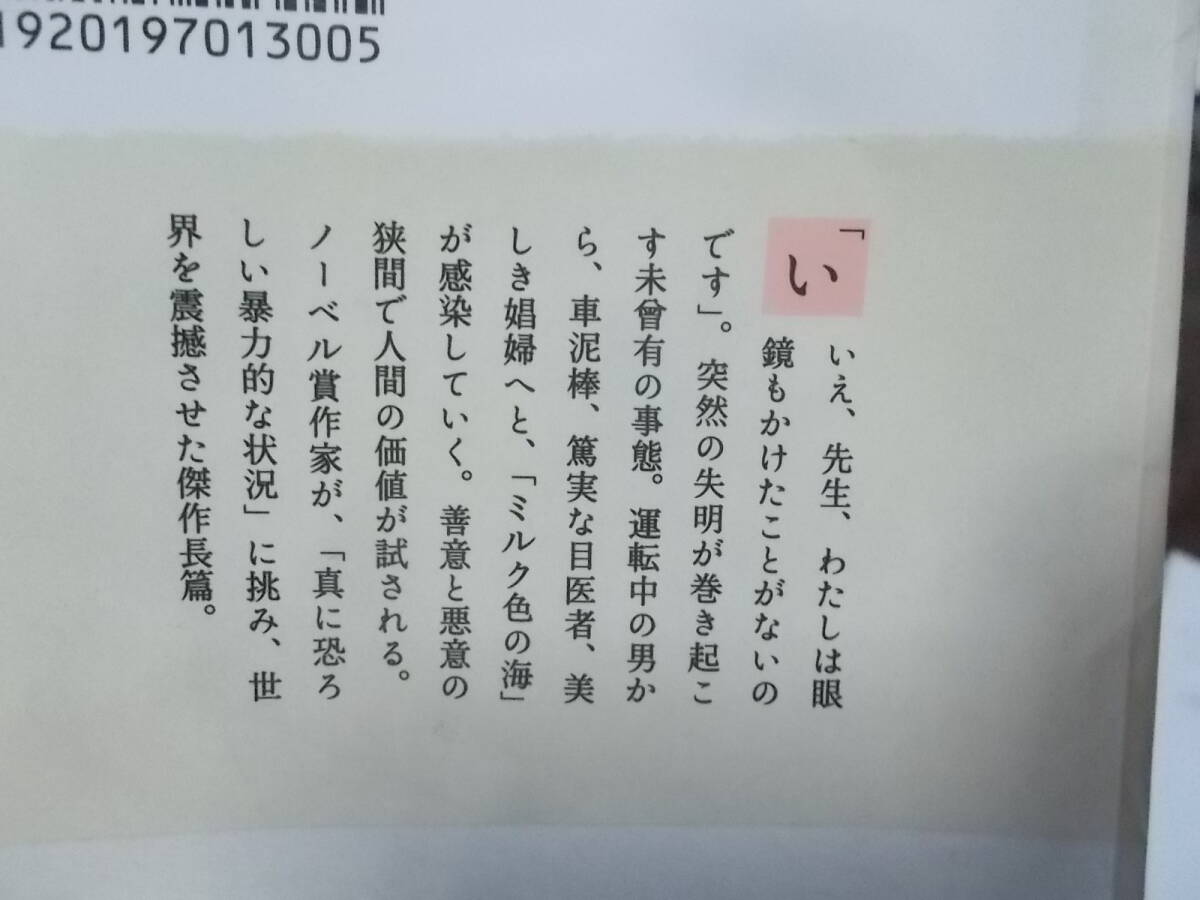 1920197013005
「い
いえ、先生、わたしは眼
鏡もかけたことがないの
です」。突然の失明が巻き起こ
す未曾有の事態。運転中の男か
ら、車泥棒、篤実な目医者、美
しき娼婦へと、「ミルク色の海」
が感染していく。善意と悪意の
狭間で人間の価値が試される。
ノーベル賞作家が、「真に恐ろ
しい暴力的な状況」に挑み、世
界を震撼させた傑作長篇。